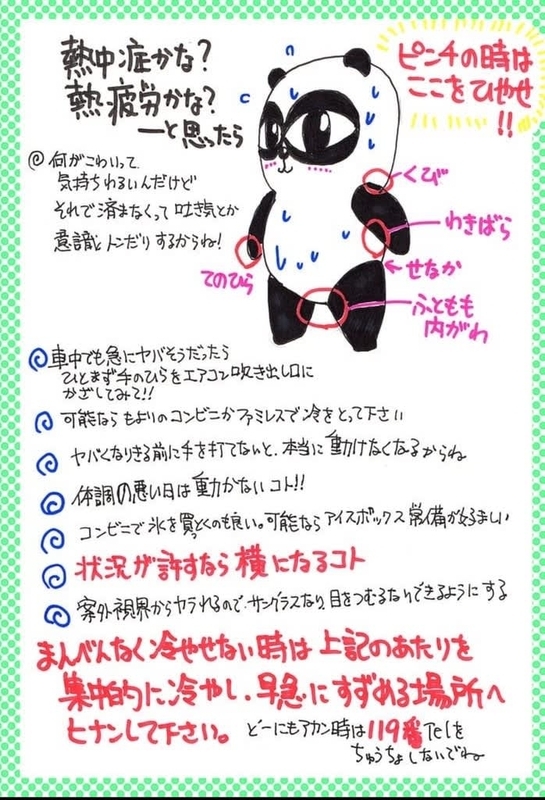 熱中症かな?
熱疲労かな?
ーと思ったら
ピンチの時は
ここをひやせ
!!
何がこわいって
気持ちわるいんだけど
それで済まなくって吐き気とか
意識トンだりするからね!
くび
わきばら
せなか
てのひら
ふともも
内がわ
車中でも急にヤバそうだったら
ひとまず手のひらをエアコン吹き出し口に
かざしてみて!!
可能ならもよりのコンビニかファミレスで冷をとって下さい
ヤバくなりきる前に手を打てないと、本当に動けなくなるからね
体調の悪い日は動かないコト!!
コンビニで氷を買っとくのも良い。可能ならアイスボックス常備が好ましい
状況が許すなら横になるコト
案外視界からヤラれるので、サングラスなり、目をつむるなりできるようにする
まんべんなく冷やせない時は上記のあたりを
集中的に冷やし、早急にすずめる場所へ
ヒナンして下さい。どーにもアカン時は119番Telを
ちゅうちょしないでね